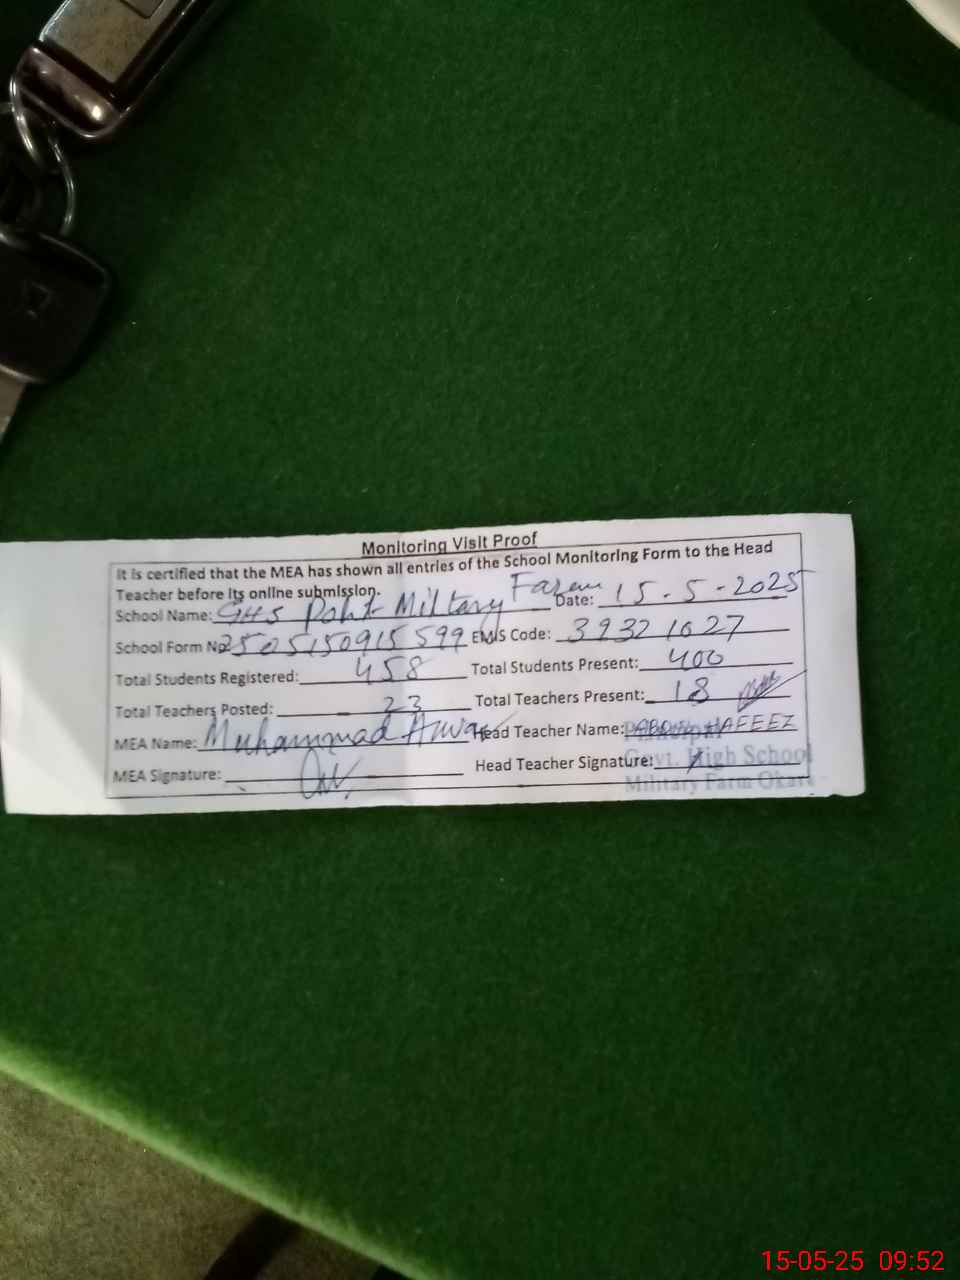 Monitoring Visit Proof
It is certified that the MEA has shown all entries of the School Monitoring Form to the Head
Teacher before its online submission.
School Name: GHS Military Farm Date: 15-5-2025
School Form No 2505150915599 EMIS Code: 39321027
Total Students Registered: 458 Total Students Present: 400
Total Teachers Posted: 23 Total Teachers Present: 18
MEA Name: Muhammad Anwar Head Teacher Name: ABDUL HAFEEZ
MEA Signature: Head Teacher Signature:
Govt. High School
Military Farm Okara
15-05-25 09:52